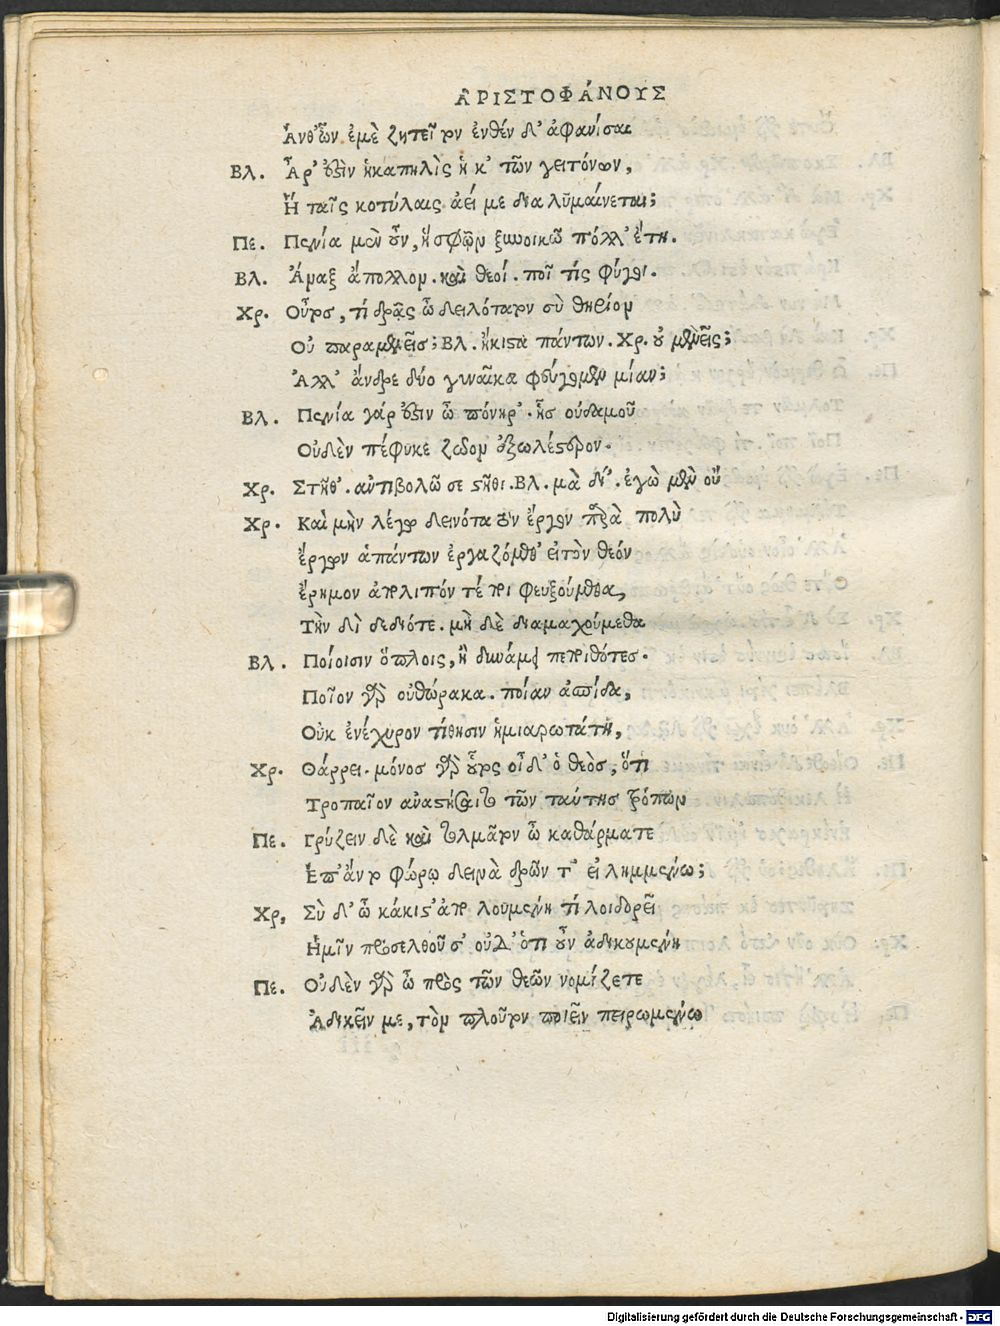 ΑΡΙΣΤΟΦΑΝΟΥΣ
Ἀνθ' ὧν ἐμὲ ζητεῖτον ἐνθένδ' ἀφανίσαι
Βλ. Ἆρ' ἐστὶν ἡ καπηλὶς ἡ κ' τῶν γειτόνων,
Ἣ ταῖς κοτύλαις ἀεί με διαλυμαίνεται;
Πε. Πενία μὲν οὖν, ἣ σφῷν ξυνοικῶ πόλλ' ἔτη.
Βλ. Ἄναξ ἄπολλον. καὶ θεοί. ποῖ τίς φύγει.
Χρ. Οὗτος, τί δρᾷς ὦ δειλότατον σὺ θηρίον
Οὐ παραμενεῖς; Βλ. ἥκιστα πάντων. Χρ. οὐ μενεῖς;
Ἀλλ' ἄνδρε δύο γυναῖκα φεύγομεν μίαν;
Βλ. Πενία γάρ ἐστιν ὦ πόνηρ'. ἧς οὐδαμοῦ
Οὐδὲν πέφυκε ζῶον ἐξωλέστερον.
Χρ. Στῆθ'. ἀντιβολῶ σε στῆθι. Βλ. μὰ Δί'. ἐγὼ μὲν οὔ
Χρ. Καὶ μὴν λέγω δεινότατον ἔργον παρὰ πολὺ
ἔργων ἁπάντων ἐργαζόμεθ' εἰ τὸν θεόν
ἔρημον ἀπολιπόντέ ποι φευξούμεθα,
Τὴν δὶ δεδιότε. μὴ δὲ διαμαχούμεθα
Βλ. Ποίοισιν ὅπλοις, ἢ δυνάμει πεποιθότες.
Ποῖον γὰρ οὐ θώρακα. ποίαν ἀσπίδα,
Οὐκ ἐνέχυρον τίθησιν ἡ μιαρωτάτη,
Χρ. Θάρρει. μόνος γὰρ οὗτος οἶδ' ὁ θεὸς, ὅτι
Τροπαῖον ἀναστήσαιτο τῶν ταύτης τρόπων
Πε. Γρύζειν δὲ καὶ τολμᾶτον ὦ καθάρματε
Ἐπ' αὐτοφώρῳ δεινὰ δρῶντ' εἰλημμένω;
Χρ, Σὺ δ' ὦ κάκιστ' ἀπολουμένη τί λοιδορεῖ
Ἡμῖν προσελθοῦσ' οὐδ' ὁτιοῦν ἀδικουμένη
Πε. Οὐδὲν γὰρ ὦ πρὸς τῶν θεῶν νομίζετε
Ἀδικεῖν με, τὸν πλοῦτον ποιεῖν πειρωμένω
Digitalisierung gefördert durch die Deutsche Forschungsgemeinschaft - DFG